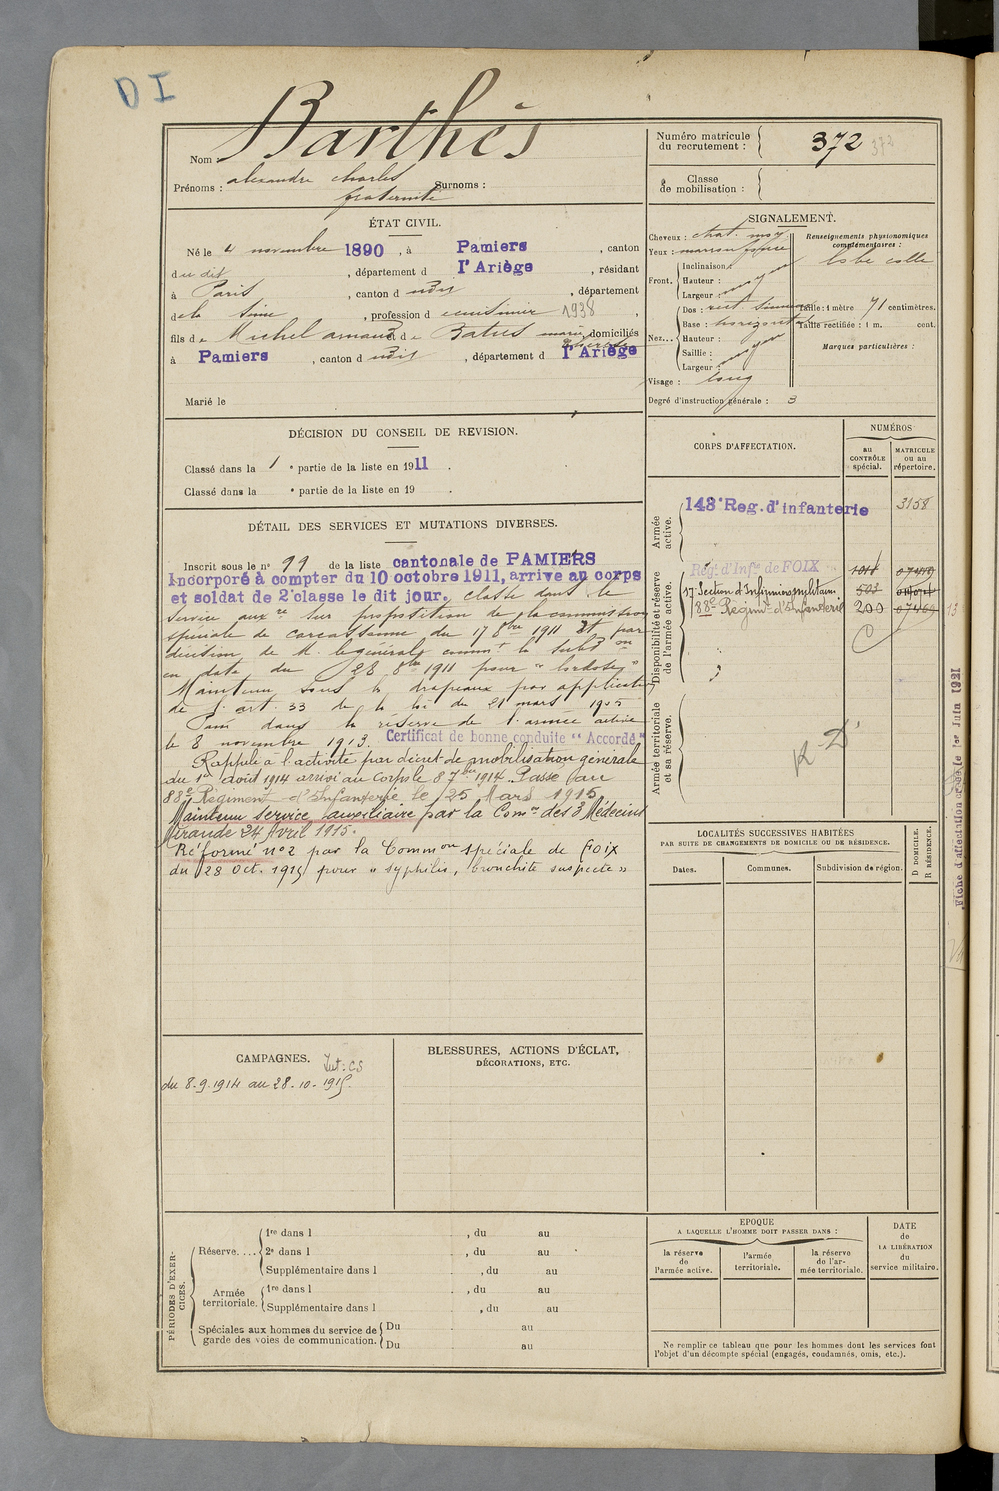 D I
Nom : Barthès
Prénoms : alexandre charles Surnoms :
fraternité
Numéro matricule du recrutement : 372 372
Classe de mobilisation :
ÉTAT CIVIL.
Né le 4 novembre 1890, à Pamiers, canton
du dit, département d l'Ariège, résidant
à Paris, canton d udit, département
de la Seine, profession d cuisinier 1938,
fils de Michel arnaud et de Batut marie domiciliés
à Pamiers, canton d udit, département d l'Ariège
Marié le
SIGNALEMENT.
Cheveux : chat. moy
Yeux : marron foncé
Front. Inclinaison :
Hauteur : moyen
Largeur :
Nez... Dos : rect. sinueux
Base : horizontal
Hauteur :
Saillie : moyen
Largeur :
Visage : long
Degré d'instruction générale : 3
Renseignements physionomiques complémentaires :
lobe colle
Taille : 1 mètre 71 centimètres.
Taille rectifiée : 1 m. cent.
Marques particulières :
DÉCISION DU CONSEIL DE REVISION.
Classé dans la 1e partie de la liste en 1911.
Classé dans la e partie de la liste en 19 .
DÉTAIL DES SERVICES ET MUTATIONS DIVERSES.
Inscrit sous le n° 99 de la liste cantonale de PAMIERS
Incorporé à compter du 10 octobre 1911, arrive au corps
et soldat de 2e classe le dit jour. classé dans le
service auxre sur proposition de la commission
spéciale de carcassonne du 17 8bre 1911 et par
décision de M. le général commt la subdon
en date du 28 8bre 1911 pour "lordose"
Maintenu sous les drapeaux par application
de l'art. 33 de la loi du 21 mars 1905
Passé dans la réserve de l'armée active
le 8 novembre 1913. Certificat de bonne conduite "Accordé"
Rappelé à l'activité par décret de mobilisation générale
du 1er août 1914 arrivé au corps le 8 7bre 1914. Passé au
88e Régiment d'Infanterie le 25 Mars 1915
Maintenu service auxiliaire par la Comon des 3 Médecins
Mirande 24 Avril 1915.
Réformé n°2 par la Common spéciale de Foix
du 28 oct. 1915 pour "syphilis, bronchite suspecte"
CORPS D'AFFECTATION.
NUMÉROS
au CONTRÔLE spécial.
MATRICULE ou au répertoire.
Armée active.
143e Reg. d'infanterie 3158
Disponibilité et réserve de l'armée active.
Reg. d'Infie de FOIX 1011
17e Section d'Infirmiers militaires 503
88e Régimt d'Infanterie 200 07469
Armée territoriale et sa réserve.
R D
13
Fiche d'affectation créée le 1er Juin 1921
LOCALITÉS SUCCESSIVES HABITÉES
PAR SUITE DE CHANGEMENTS DE DOMICILE OU DE RÉSIDENCE.
Dates.
Communes.
Subdivision de région.
D DOMICILE.
R RÉSIDENCE.
CAMPAGNES. Int: CS
du 8.9.1914 au 28.10.1915
BLESSURES, ACTIONS D'ÉCLAT,
DÉCORATIONS, ETC.
PÉRIODES D'EXERCICES.
Réserve.... 1re dans l , du au
2e dans l , du au
Supplémentaire dans l , du au
Armée territoriale. 1re dans l , du au
Supplémentaire dans l , du au
Spéciales aux hommes du service de garde des voies de communication. Du au
Du au
EPOQUE
A LAQUELLE L'HOMME DOIT PASSER DANS :
la réserve de l'armée active.
l'armée territoriale.
la réserve de l'armée territoriale.
DATE
de
LA LIBÉRATION
du
service militaire.
Ne remplir ce tableau que pour les hommes dont les services font
l'objet d'un décompte spécial (engagés, condamnés, omis, etc.).